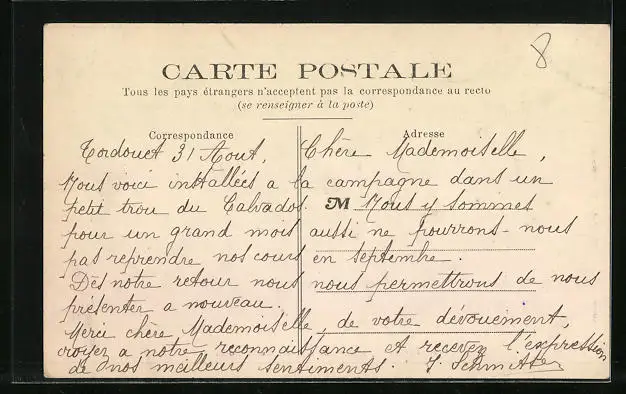 8
CARTE POSTALE
Tous les pays étrangers n'acceptent pas la correspondance au recto
(se renseigner à la poste)
Correspondance
Adresse
Tordouet 31 Aout, Chère Mademoiselle,
Nous voici installées a la campagne dans un
petit trou du Calvados. M Nous y sommes
pour un grand mois aussi ne pourrons-nous
pas reprendre nos cours en septembre.
Dès notre retour nous nous permettrons de nous
présenter a nouveau.
Merci chère Mademoiselle, de votre dévouement,
croyez a notre reconnaissance et recevez l'expression
de nos meilleurs sentiments. J.